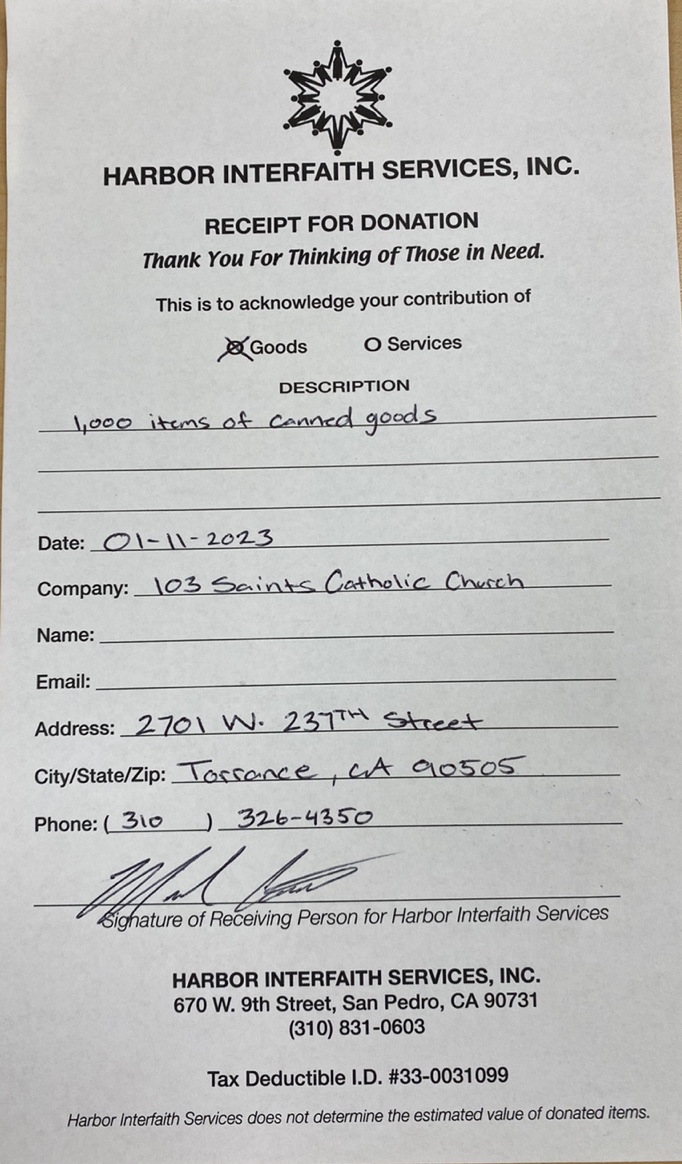 HARBOR INTERFAITH SERVICES, INC.
RECEIPT FOR DONATION
Thank You For Thinking of Those in Need.
This is to acknowledge your contribution of
Goods O Services
DESCRIPTION
1,000 items of canned goods
Date: 01-11-2023
Company: 103 Saints Catholic Church
Name:
Email:
Address: 2701 W. 237TH Street
City/State/Zip: Torrance, CA 90505
Phone: ( 310 ) 326-4350
Signature of Receiving Person for Harbor Interfaith Services
HARBOR INTERFAITH SERVICES, INC.
670 W. 9th Street, San Pedro, CA 90731
(310) 831-0603
Tax Deductible I.D. #33-0031099
Harbor Interfaith Services does not determine the estimated value of donated items.